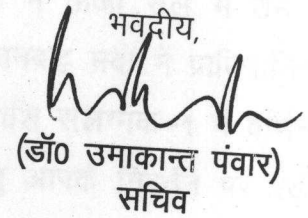 भवदीय,
(डॉ0 उमाकान्त पंवार)
सचिव